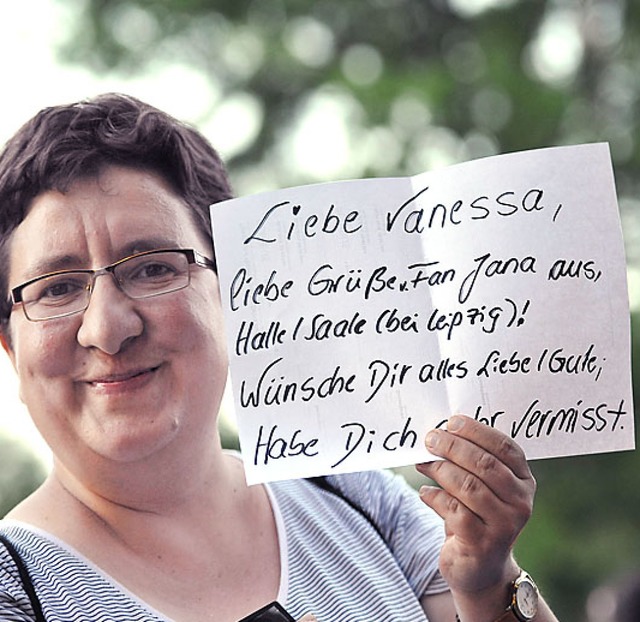 Liebe Vanessa,
liebe Grüße v. Fan Jana aus,
Halle/Saale (bei Leipzig)!
Wünsche Dir alles Liebe/Gute;
Habe Dich vermisst.